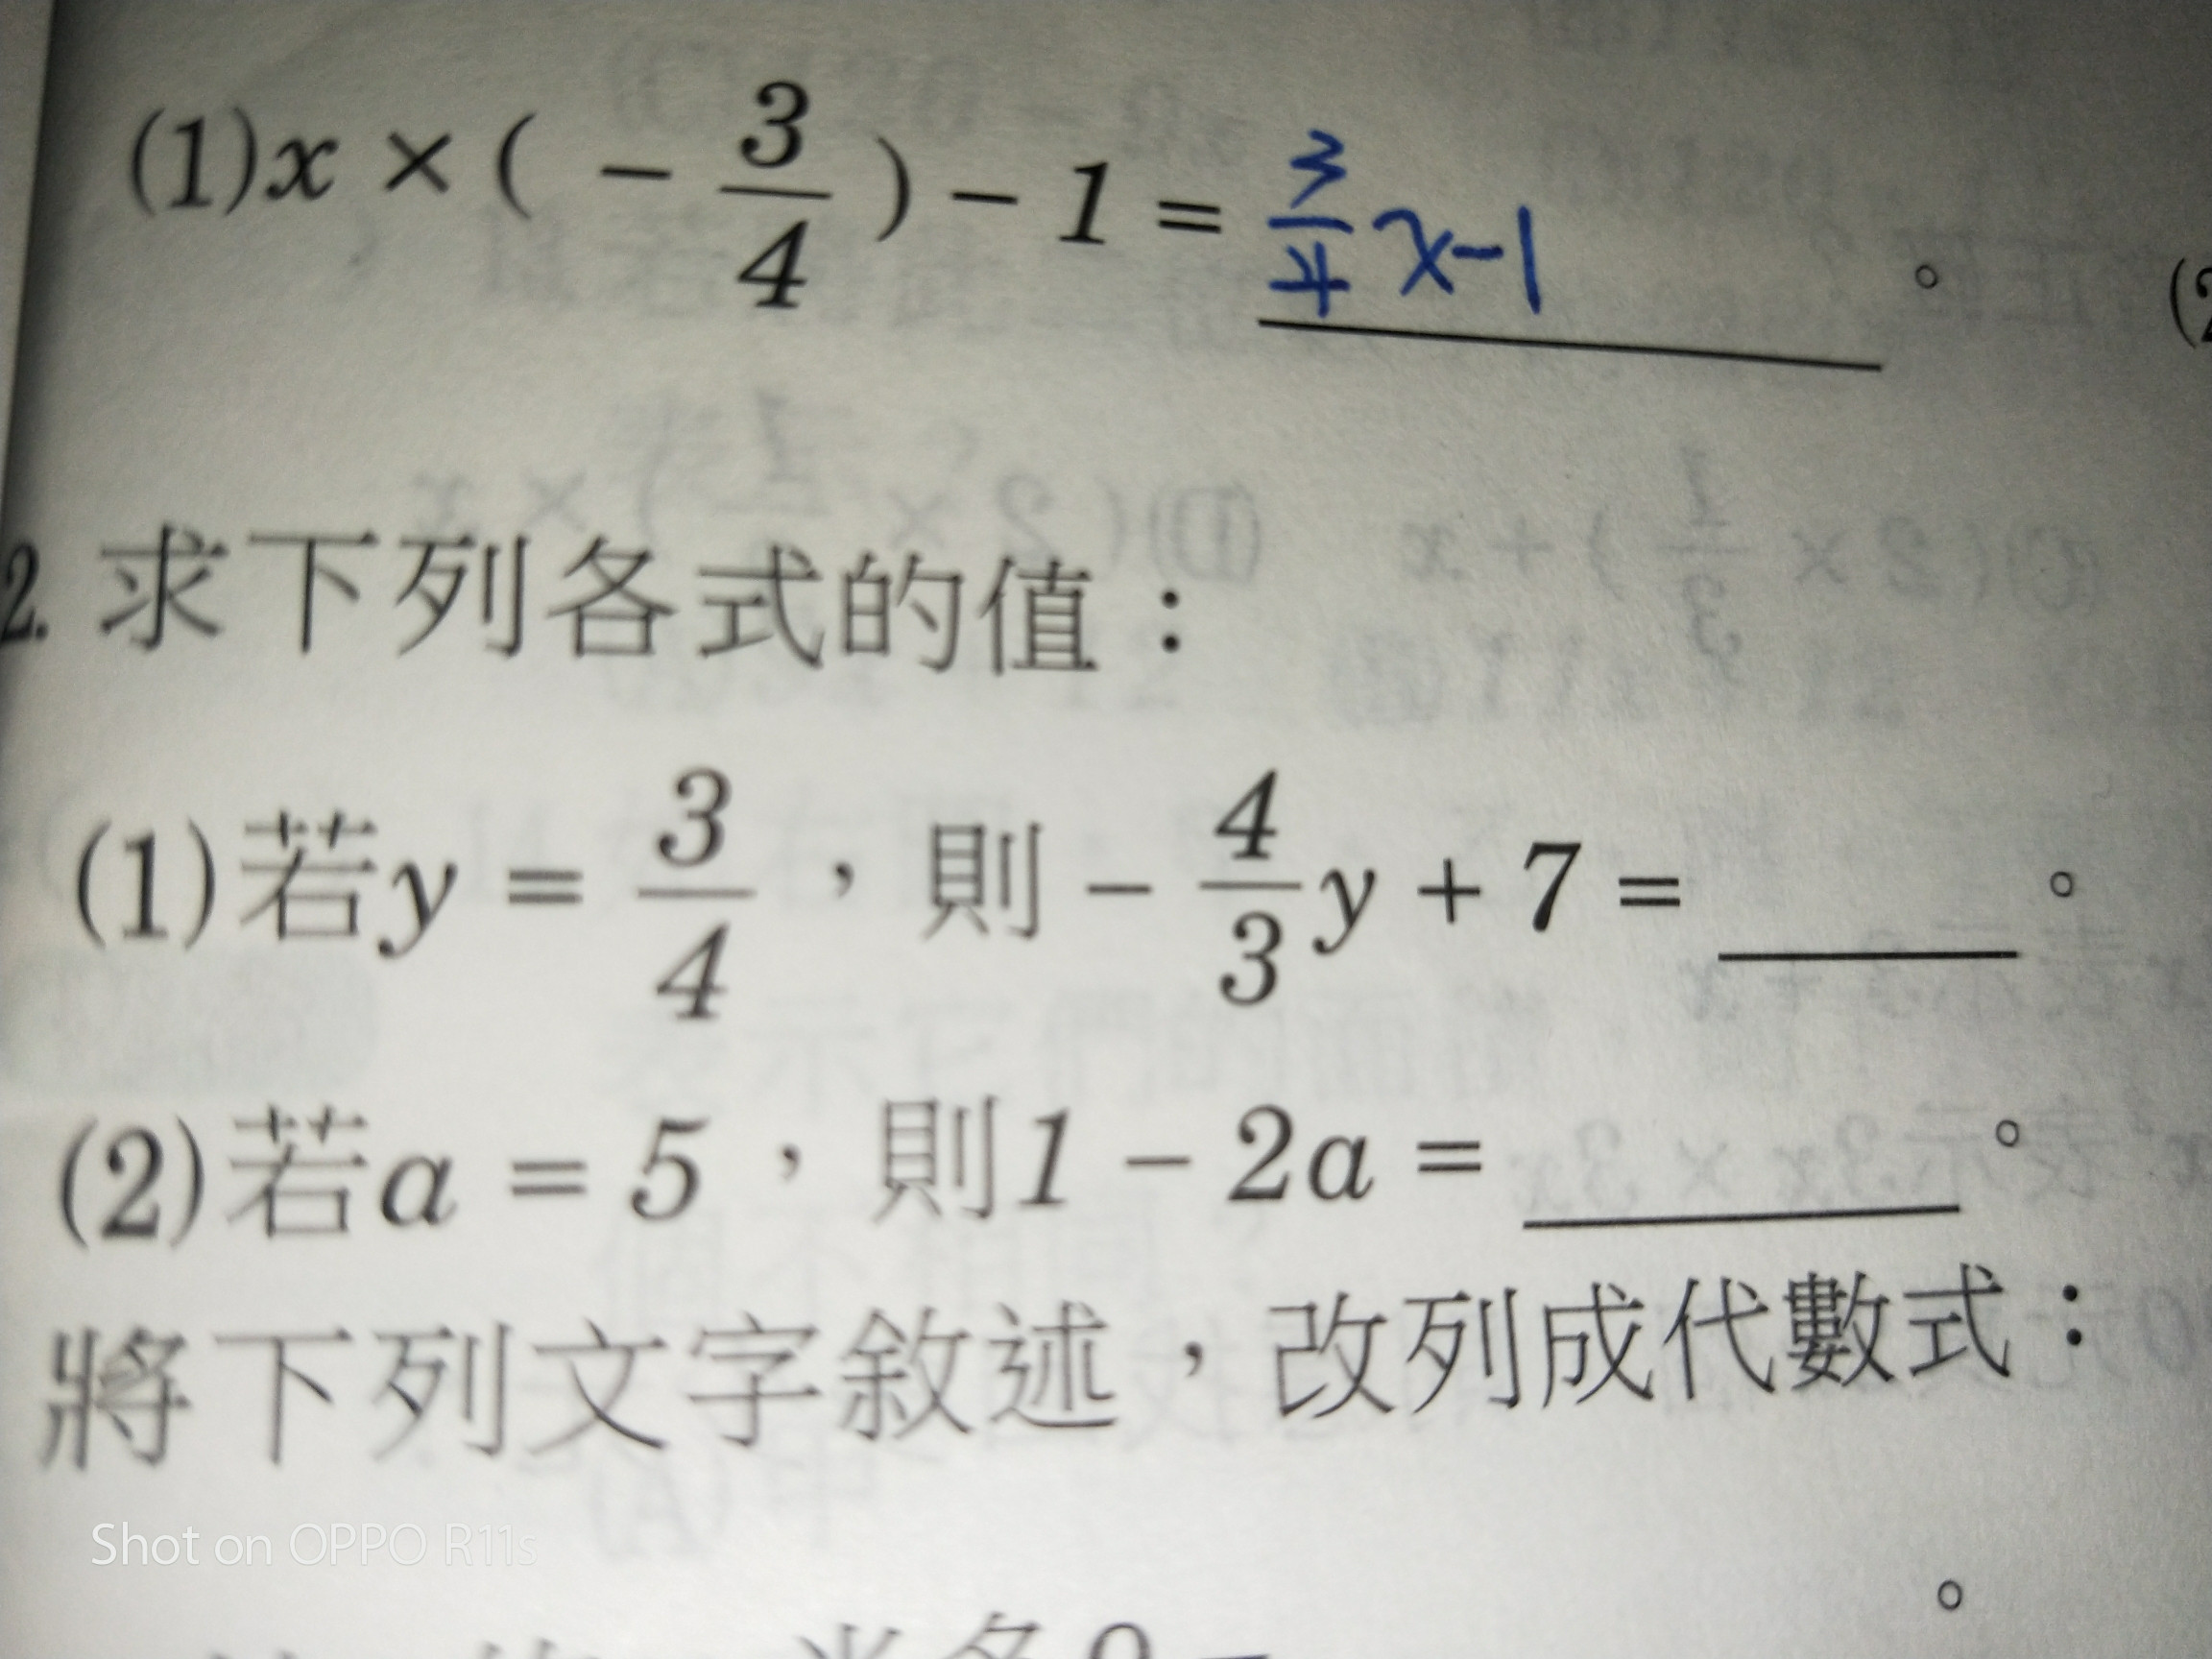 (1) x × ( − 3/4 ) − 1 = 3/4 x−1 。 (2
2. 求下列各式的值：
(1) 若 y = 3/4 ，則 − 4/3 y + 7 = ______ 。
(2) 若 a = 5 ，則 1 − 2a = ______ 。
將下列文字敘述，改列成代數式：
Shot on OPPO R11s
。